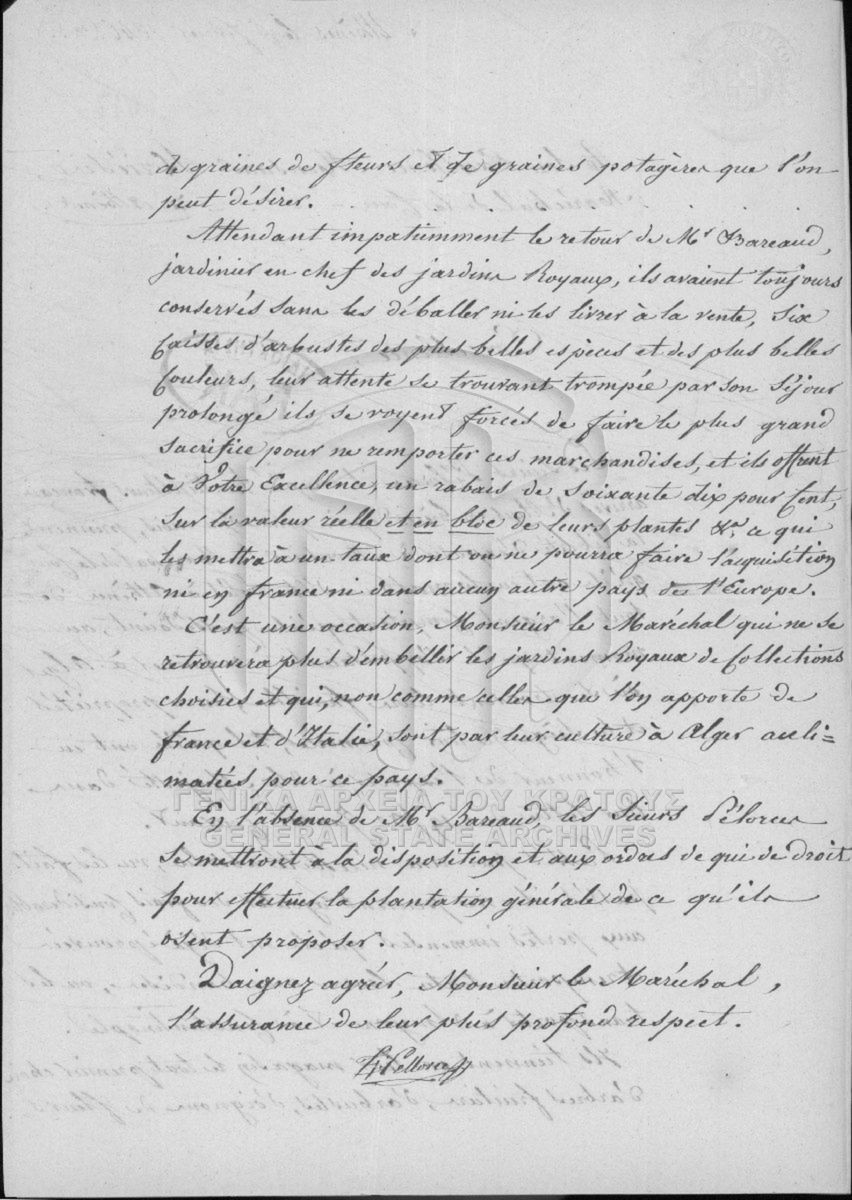 de graines de fleurs et de graines potagères que l'on
peut désirer.
Attendant impatiemment le retour de Mr Bareaud,
jardinier en chef des jardins Royaux, ils avaient toujours
conservés sans les déballer ni les livrer à la vente, six
caisses d'arbustes des plus belles espèces et des plus belles
couleurs, leur attente se trouvant trompée par son séjour
prolongé ils se voyent forcés de faire le plus grand
sacrifice pour ne remporter ces marchandises, et ils offrent
à Votre Excellence, un rabais de soixante dix pour Cent,
sur la valeur réelle et en bloc de leurs plantes &a ce qui
les mettra à un taux dont on ne pourra faire l'acquisition
ni en france ni dans aucun autre pays de l'Europe.
C'est une occasion, Monsieur le Maréchal qui ne se
retrouvera plus d'embellir les jardins Royaux de Collections
choisies et qui, non comme celles que l'on apporte de
france et d'Italie, sont par leur culture à Alger accli=
matées pour ce pays.
ΓΕΝΙΚΑ ΑΡΧΕΙΑ ΤΟΥ ΚΡΑΤΟΥΣ
En l'absence de Mr Bareaud, les Sieurs Pélorce
GENERAL STATE ARCHIVES
se mettront à la disposition et aux ordres de qui de droit
pour effectuer la plantation générale de ce qu'ils
osent proposer.
Daignez agréer, Monsieur le Maréchal,
l'assurance de leur plus profond respect.